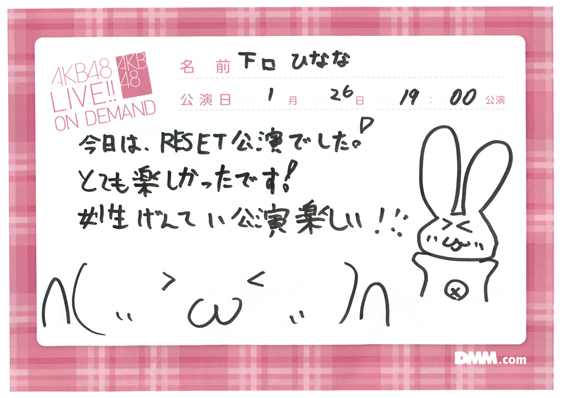 AKB48
LIVE!!
ON DEMAND
AKB
48
名 前 下口 ひなな
公演日 1月 26日 19:00 公演
今日は、RESET公演でした。
とても楽しかったです!
女性げんてい公演楽しい!!!
∩( ,, > ω < ,, )∩
DMM.com